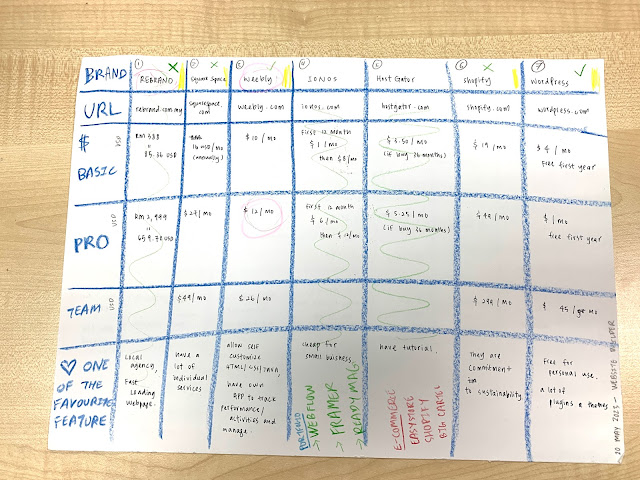 BRAND
① REBRAND
② Square Space
③ Weebly
④ IONOS
⑤ Host Gator
⑥ shopify
⑦ Wordpress
URL
rebrand.com.my
squarespace.com
weebly.com
ionos.com
hostgator.com
shopify.com
wordpress.com
$
BASIC
USD
RM 388
=
85.36 USD
16 USD/mo
(annually)
$ 10 / mo
First 12 month
$ 1 / mo
then $8/mo
$ 3.50 / mo
(if buy 36 months)
$ 19 / mo
$ 4 / mo
Free first year
PRO
USD
RM 2,999
=
659.78 USD
$ 27 / mo
$ 12 / mo
First 12 month
$ 6 / mo
then $ 12/mo
$ 5.25 / mo
(if buy 36 months)
$ 49 / mo
$ / mo
free first year
TEAM
USD
$49 / mo
$ 26 / mo
$ 299 / mo
$ 45 / mo
♡ ONE
OF THE
FAVOURITE
FEATURE
Local
agency,
Fast
Loading
webpage.
have a
lot of
individual
services
allow self
customize
HTML/CSS/JAVA
have own
APP to track
performance/
activities and
manage.
cheap for
small business
have tutorial.
They are
commitment
to sustainability
Free for
personal use.
a lot of
plugins & themes
PORTFOLIO
→ WEBFLOW
→ FRAMER
→ READYMAG
E-COMMERCE
EASYSTORE
SHOPIFY
BIG CARTEL
20 MAY 2023 - WEBSITE